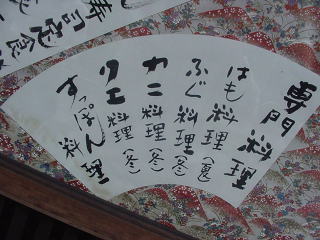 専門料理
はも料理(夏)
ふぐ料理(冬)
カニ料理(冬)
クエ料理(冬)
すっぽん料理
寿司定食